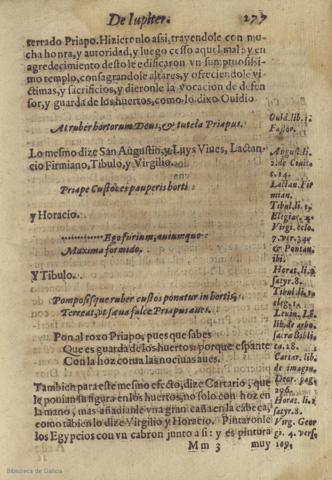 De Iupiter. 277
terrado Priapo. Hizieronlo assi, trayendole con mu-
cha honra, y autoridad, y luego cesso aquel mal: y en
agredecimiento desto le edificaron vn sumptuosissi
mo templo, consagrandole altares, y ofreciendole vi
ctimas, y sacrificios, y dieronle la vocacion de defen
sor, y guarda de los huertos, como lo dixo Ouidio
At ruber hortorum Deus, & tutela Priapus.
Lo mesmo dize San Augustin, y Luys Viues, Lactan
cio Firmiano, Tibulo, y Virgilio.
Priape Custos es pauperis horti
y Horacio.
Ego furium, auiumque
Maxima formido.
Y Tibulo.
Pomposisque ruber custos ponatur in hortis,
Terreat, vt saua falce Priapus aues.
Pon al rozo Priapo, pues que sabes
Que es guarda de los huertos: porque espante
Con la hoz corua las nociuas aues.
Tambien para este mesmo efecto, dize Cartario, que
le ponian su figura en los huertos, no solo con hoz en
la mano, mas añadianle vna gran caña en la cabeça,
como tãbien lo dize Virgilio y Horacio. Pintaronle
los Egypcios con vn cabron junto a si: y es pintura
Mm 3 muy
Ouid. lib. 1.
Fastor.
August. li.
2. de Ciuit.
c. 14.
Lactan. Fir
mian.
Tibul. li.
Elegia.
Virg. eclo.
7. ver. 34
& Pontan.
ibi.
Horat. li.
satyr. 8.
Tibul. li.
eleg. 1.
Leuin. L.
lib. de arbo.
sacra Biblia
ca. 18.
Cartar. lib.
de imagin.
Deor. pag.
296.
Horat. li. 1.
satyr. 8.
Virg. Geor
gi. 4. vers.
109.
Biblioteca de Galicia